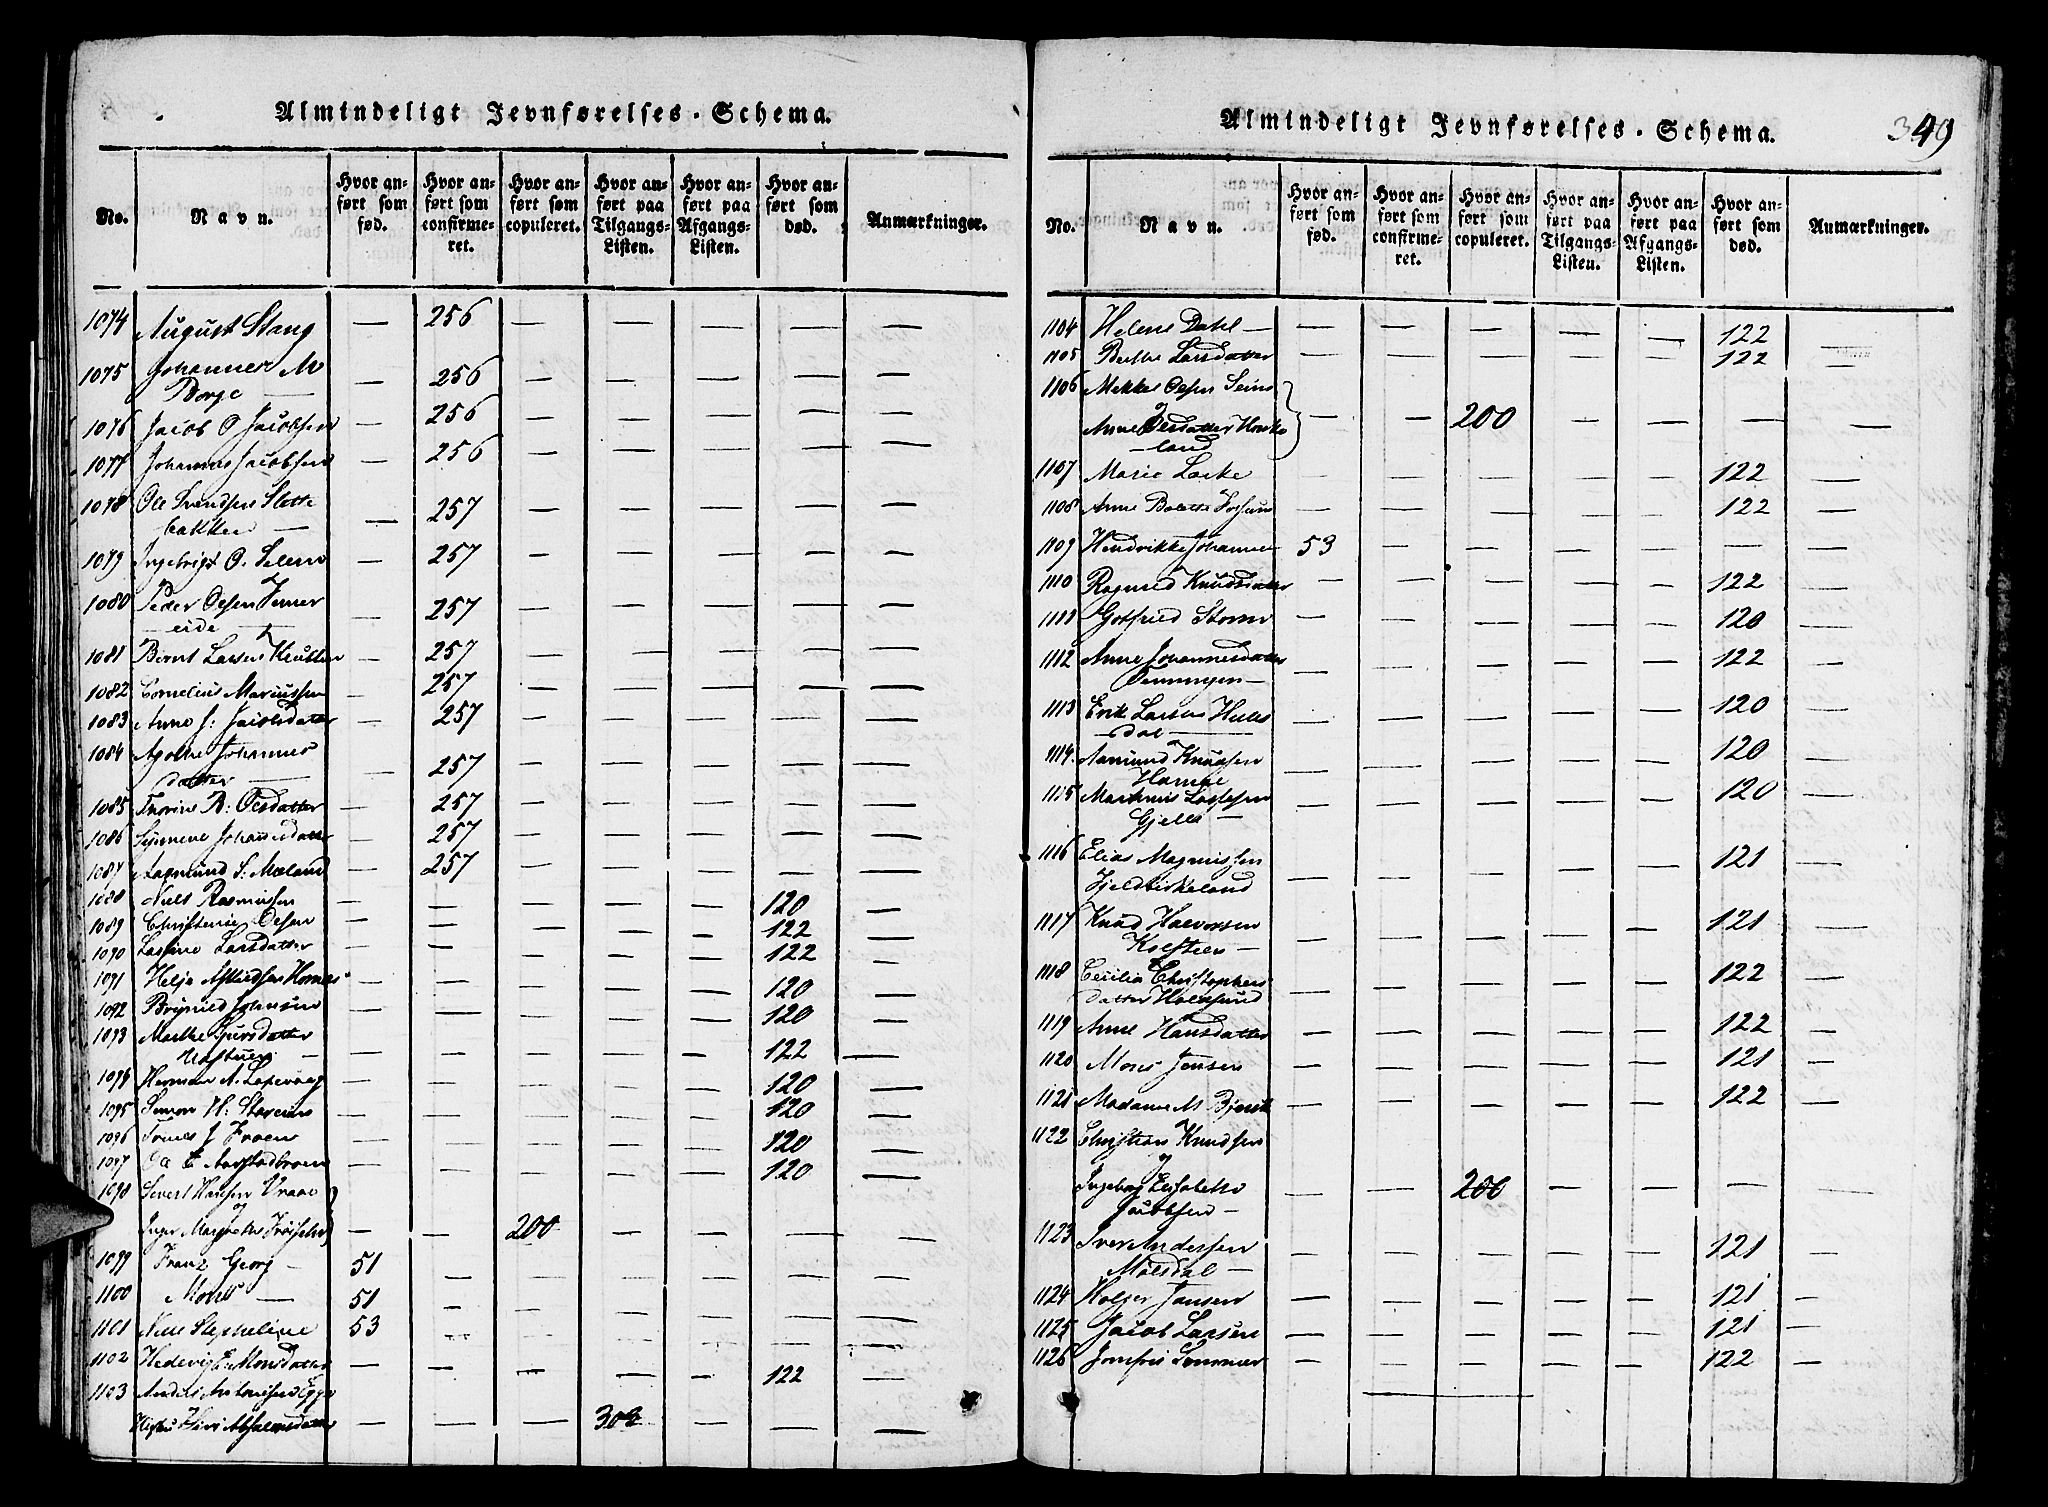 Almindeligt Jevnførelses-Schema.
No. Navn. Hvor anført som fød. Hvor anført som confirmeret. Hvor anført som copuleret. Hvor anført paa Tilgangs-Listen. Hvor anført paa Afgangs-Listen. Hvor anført som død. Anmærkninger.
1074 August Stang — 256 — — — — —
1075 Johannes M
Borge — — 256 — — — — —
1076 Jacob O Jacobsen — 256 — — — — —
1077 Johannes Jacobsen — 256 — — — — —
1078 Ole Svendsen Slette
bakken — — 257 — — — — —
1079 Ingebrigt O. Selem — 257 — — — — —
1080 Peder Olsen
eide — — 257 — — — — —
1081 Bernt Larsen — 257 — — — — —
1082 Cornelius Mariussen — 257 — — — — —
1083 Anne J: Jacobsdatter — 257 — — — — —
1084 Agathe Johannes
datter — — 257 — — — — —
1085 Thorine B: Olsdatter — 257 — — — — —
1086 Johannesdatter — 257 — — — — —
1087 Aagmund S: Mæland — 257 — — — — —
1088 Niels Rasmussen — — — — — 120 —
1089 Christense Olsen — — — — — 122 —
1090 Larsdatter — — — — — 122 —
1091 Helje — — — — — 120 —
1092 Johnsen — — — — — 120 —
1093 Marthe
— — — — — — 122 —
1094 Herman A. — — — — — 120 —
1095 Simon H: — — — — — 120 —
1096 Tønnes J — — — — — 120 —
1097 Ole E — — — — — 120 —
1098 Sivert Hansen
og
Inger Margrethe — — 200 — — — —
1099 Franz Georg — 51 — — — — — —
1100 Mons — 51 — — — — — —
1101 Stepheline 53 — — — — — —
1102 Hedevig E: Monsdatter — — — — — 122 —
1103 Anders
— — — 302 — — —
Almindeligt Jevnførelses-Schema. 349
No. Navn. Hvor anført som fød. Hvor anført som confirmeret. Hvor anført som copuleret. Hvor anført paa Tilgangs-Listen. Hvor anført paa Afgangs-Listen. Hvor anført som død. Anmærkninger.
1104 Helene Dahl — — — — — — 122 —
1105 Berthe Larsdatter — — — — — 122 —
1106 Mikkel Olsen
og
Anne Olsdatter
land — — 200 — — — —
1107 Marie — — — — — 122 —
1108 Anne Bolette — — — — — 122 —
1109 Hendrikke Johanne 53 — — — — — —
1110 Ragnild Knudsdatter — — — — — 122 —
1111 Gotfried Storm — — — — — 120 —
1112 Anne Johannesdatter
— — — — — — 122 —
1113 Erik Larsen
dal — — — — — — 120 —
1114 Aamund Knudsen
— — — — — 120 —
1115
Gjelle — — — — — — 120 —
1116 Elias Magnussen
Fjeldbirkeland — — — — — 121 —
1117 Knud Halvorsen
— — — — — — 121 —
1118 Cecilia Christophers
datter — — — — — 122 —
1119 Anne Hansdatter — — — — — 122 —
1120 Mons Jensen — — — — — 121 —
1121 Madame M — — — — — 122 —
1122 Christian Knudsen
og
Ingeborg Elisabeth
Jacobsen — — — 200 — — — —
1123 Iver Andersen
— — — — — — 121 —
1124 Holger Jansen — — — — — 121 —
1125 Jacob Larsen — — — — — 121 —
1126 Jomfru Sommer — — — — — 122 —